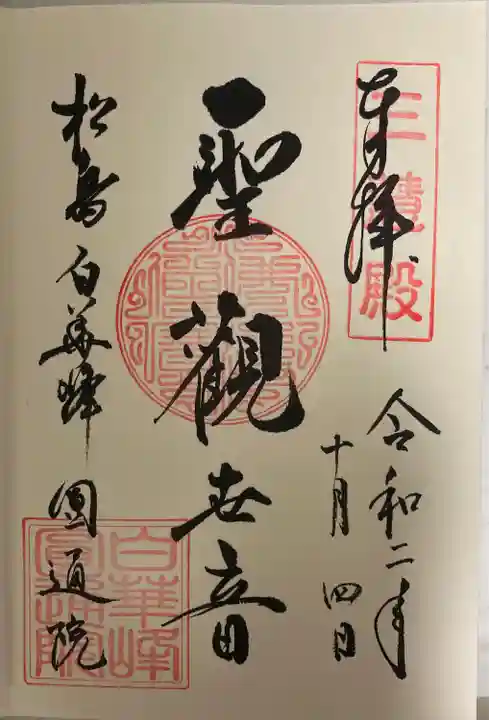 三慧殿
奉拝
令和二年
十月四日
聖観世音
松島白華峰圓通院
白華峰
圓通院